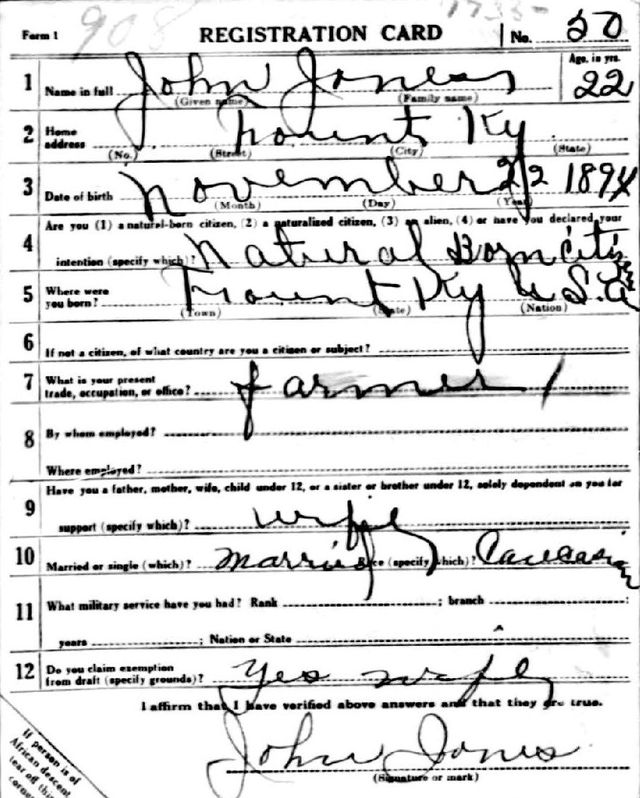 Form 1 908 REGISTRATION CARD No. 50
Age, in yrs.
1 Name in full John Jones 22
(Given name) (Family name)
2 Home address Fount Ky
(No.) (Street) (City) (State)
3 Date of birth November 22 1894
(Month) (Day) (Year)
Are you (1) a natural-born citizen, (2) a naturalized citizen, (3) an alien, (4) or have you declared your
4 intention (specify which)? Natural Born Citizen
5 Where were you born? Fount Ky U.S.A
(Town) (State) (Nation)
6 If not a citizen, of what country are you a citizen or subject?
7 What is your present trade, occupation, or office? farmer
8 By whom employed?
Where employed?
Have you a father, mother, wife, child under 12, or a sister or brother under 12, solely dependent on you for
9 support (specify which)? wife
10 Married or single (which)? Married Race (specify which)? Caucasian
11 What military service have you had? Rank ; branch ;
years ; Nation or State
12 Do you claim exemption from draft (specify grounds)? Yes wife
I affirm that I have verified above answers and that they are true.
John Jones
(Signature or mark)
If person is of
African descent
tear off this
corner